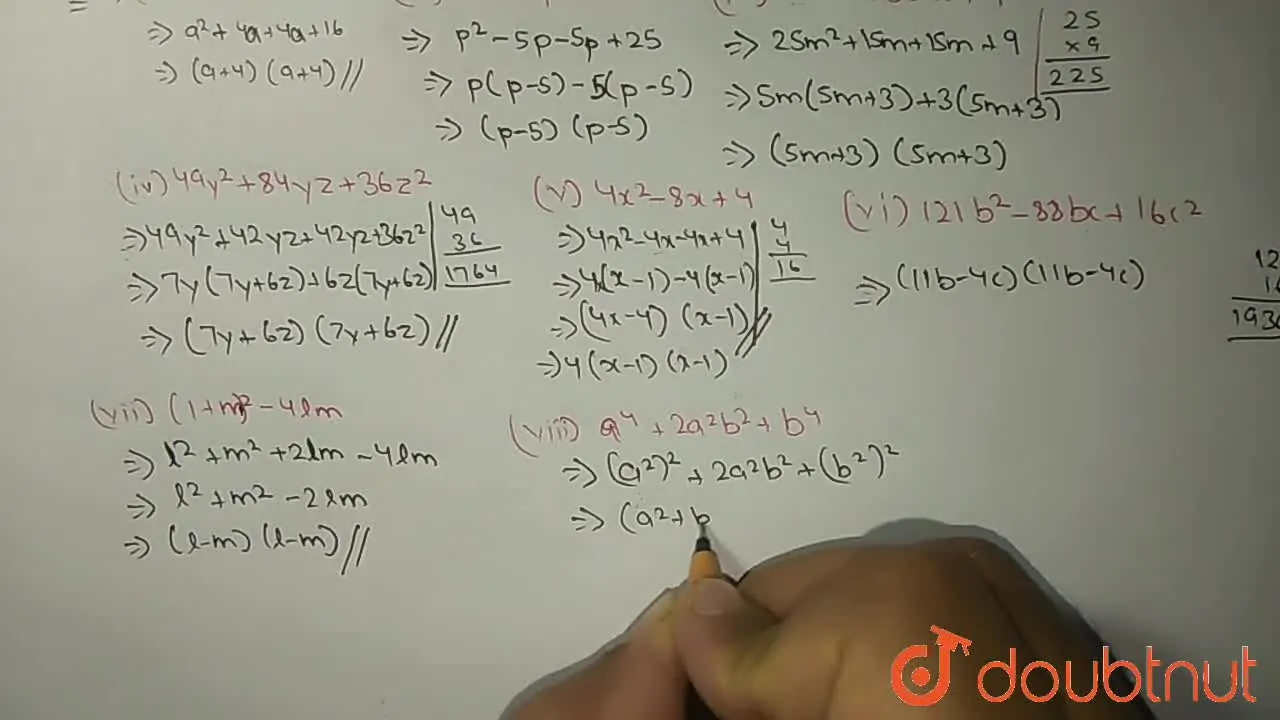 ⇒ a²+4a+4a+16
⇒ (a+4) (a+4)//
⇒ p²-5p-5p+25
⇒ p(p-5)-5(p-5)
⇒ (p-5) (p-5)
⇒ 25m²+15m+15m+9
⇒ 5m(5m+3)+3(5m+3)
⇒ (5m+3) (5m+3)
25
×9
225
(iv) 49y²+84yz+36z²
⇒ 49y²+42yz+42yz+36z²
⇒ 7y(7y+6z)+6z(7y+6z)
⇒ (7y+6z) (7y+6z)//
49
36
1764
(v) 4x²-8x+4
⇒ 4x²-4x-4x+4
⇒ 4x(x-1)-4(x-1)
⇒ (4x-4) (x-1)//
⇒ 4(x-1)(x-1)
4
4
16
(vi) 121b²-88bc+16c²
⇒ (11b-4c)(11b-4c)
12
1
193
(vii) (l+m)²-4lm
⇒ l²+m²+2lm-4lm
⇒ l²+m²-2lm
⇒ (l-m)(l-m)//
(viii) a⁴+2a²b²+b⁴
⇒ (a²)²+2a²b²+(b²)²
⇒ (a²+b
doubtnut